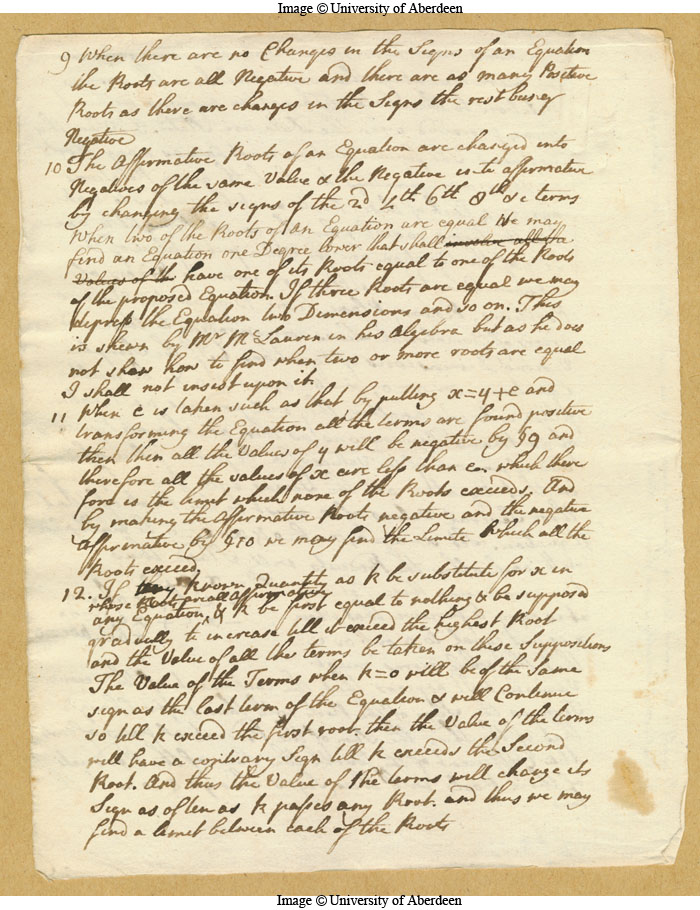 Image © University of Aberdeen
9 When there are no Changes in the Signs of an Equation
the Roots are all Negative and there are as many Positive
Roots as there are changes in the Signs the rest being
Negative
10 The Affirmative Roots of an Equation are changed into
Negatives of the same Value & the Negative into affirmative
by changing the signs of the 2d 4th 6th 8th &c terms
When two of the Roots of an Equation are equal We may
find an Equation one Degree lower that shall
Values of th have one of its Roots equal to one of the Roots
of the proposed Equation. If three Roots are equal we may
depress the Equation two Dimensions and so on. This
is shewn by Mr McLauren in his Algebra but as he does
not shew how to find when two or more roots are equal
I shall not insist upon it.
11 When e is taken such as that by putting x=y+e and
transforming the Equation all the terms are found positive
then then all the Values of y will be negative by §9 and
therefore all the values of x are less than e. which there
fore is the limit which none of the Roots exceeds. And
by making the Affirmative Roots negative and the negative
affirmative by §10 we may find the Limite Which all the
Roots exceed.
12. If any known Quantity as k be substitute for x in
whose Roots are all affirmative
any Equation, & k be first equal to nothing & be supposed
gradually to increase till it exceed the highest Root
and the Value of all the terms be taken on these Suppositions
The Value of the Terms when k=0 will be of the same
sign as the last term of the Equation & will Continue
so till k exceed the first root. then the Value of the terms
will have a contrary Sign till k exceeds the Second
Root. And thus the Value of the terms will change its
Sign as often as k passes any Root. and thus we may
find a limet between each of the Roots
Image © University of Aberdeen